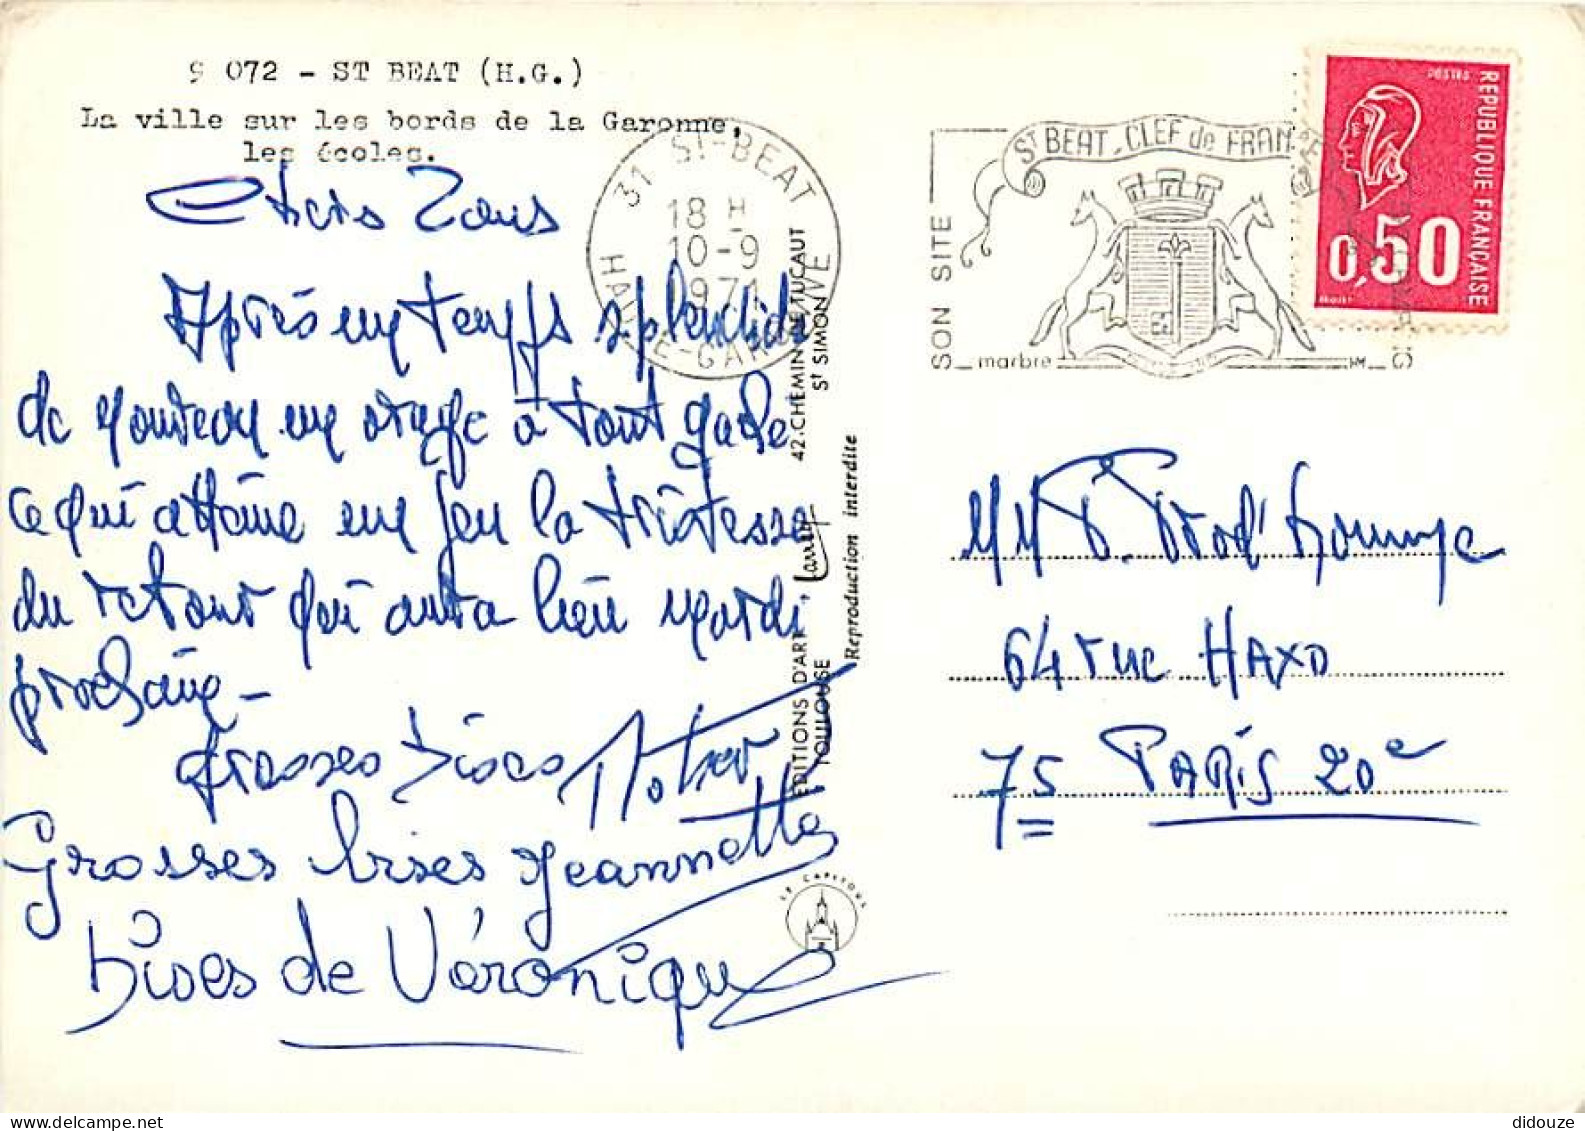 9 072 - ST BEAT (H.G.)
La ville sur les bords de la Garonne,
les écoles.
Chers Tous
Après un temps splendide
de nouveau un orage à tout casse
ce qui atténue un peu la tristesse
du retour qui aura lieu mardi
prochain -
Grosses bises
Grosses bises Jeannette
Bises de Véronique
31 ST-BEAT
18 H
10-9
1971
HAUTE-GARONNE
EDITIONS D'ART Larrey 42.CHEMIN DE TUCAUT
TOULOUSE ST SIMON
Reproduction interdite
LE CAPITOLE
ST BEAT.CLEF de FRAN
SON SITE
marbre
POSTES
REPUBLIQUE FRANÇAISE
0,50
MM P. Prod'homme
64 rue HAXO
75 PARIS 20e
didouze